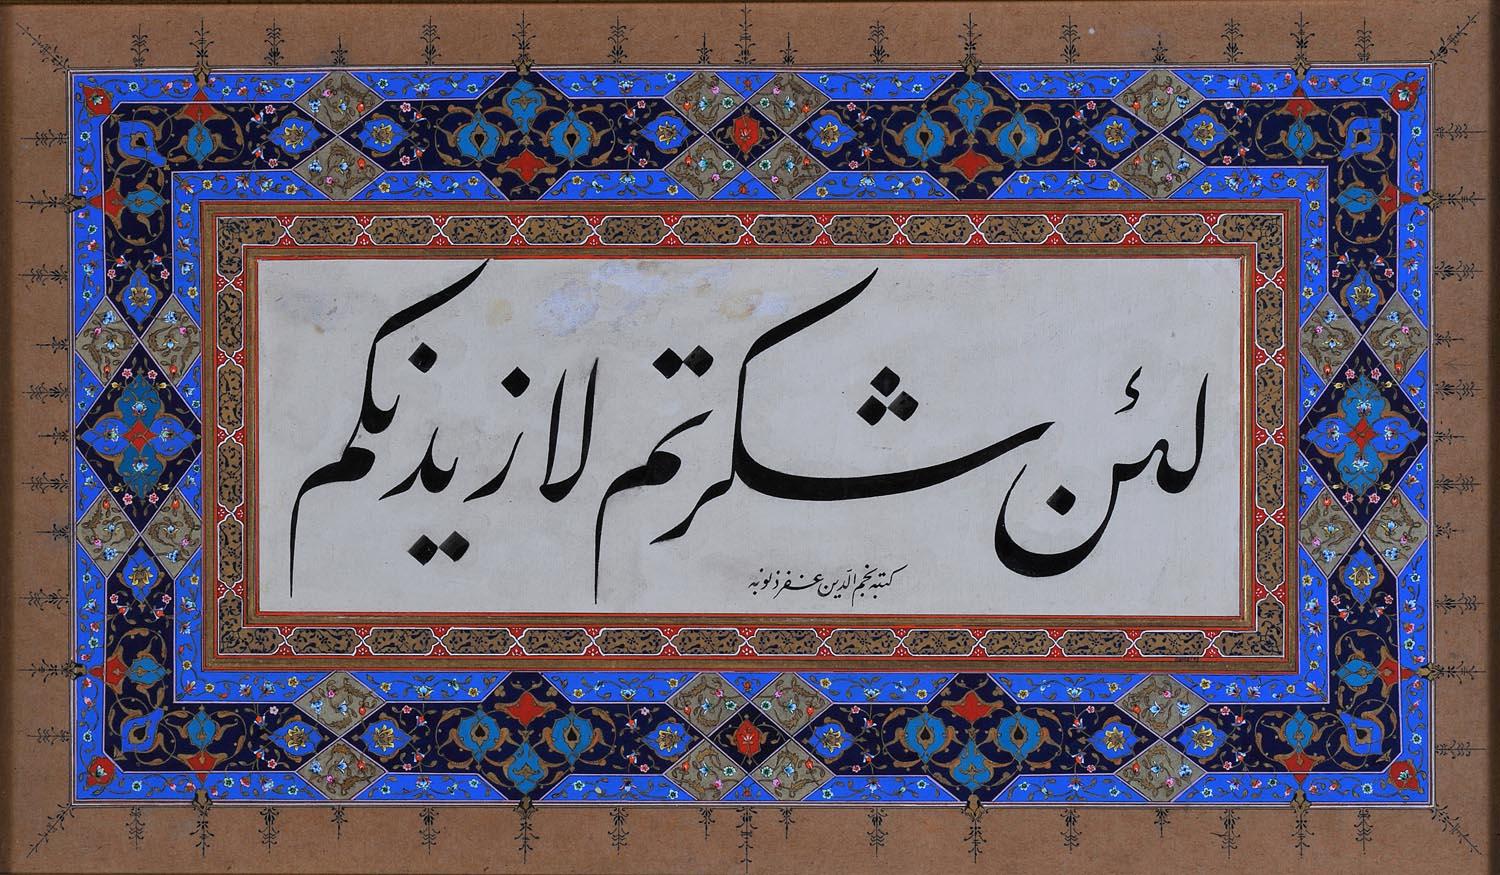 لئن شكرتم لازيدنكم
كتبه نجم الدّين غفر ذنوبه